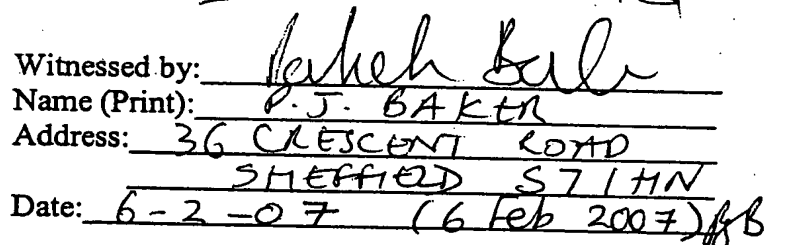 Witnessed by:
Name (Print): P. J. BAKER
Address: 36 CRESCENT ROAD
SHEFFIELD S7 1HN
Date: 6-2-07 (6 Feb 2007)